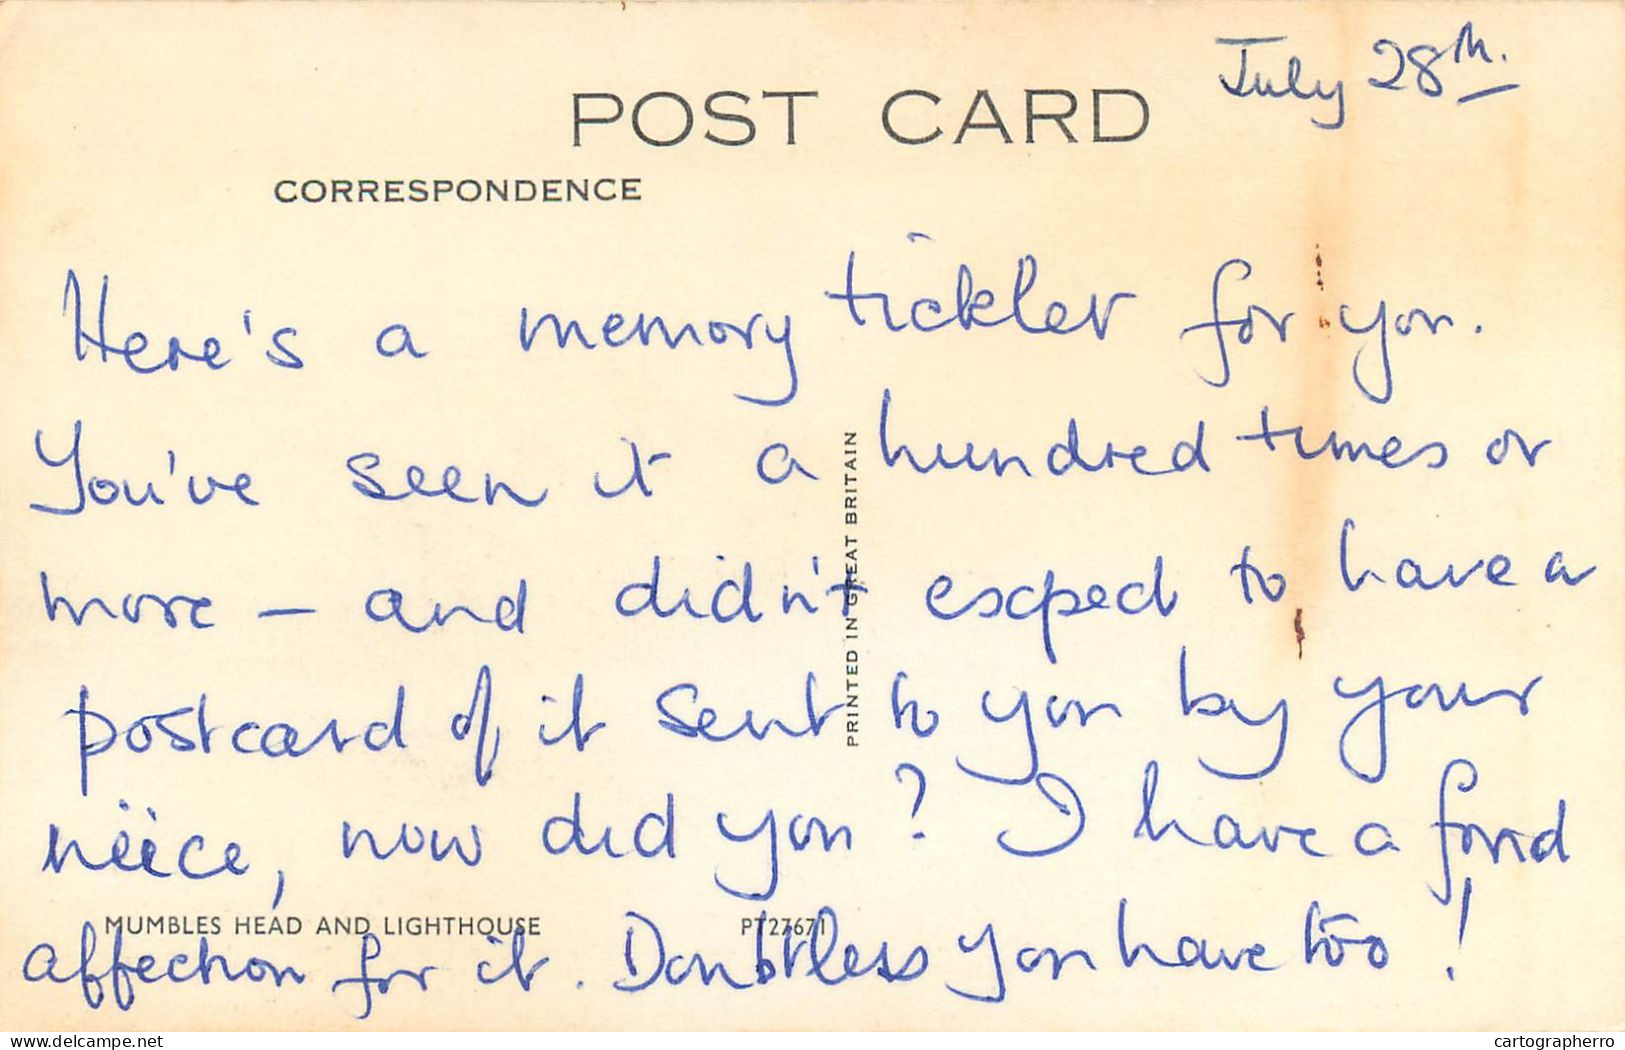 July 28th.
POST CARD
CORRESPONDENCE
Here's a memory tickler for you.
You've seen it a hundred times or
more – and didn't exped to have a
postcard of it sent to you by your
neice, now did you? I have a fond
affection for it. Doubtless you have too!
PRINTED IN GREAT BRITAIN
MUMBLES HEAD AND LIGHTHOUSE PT27671
delcampe.net
cartographerro